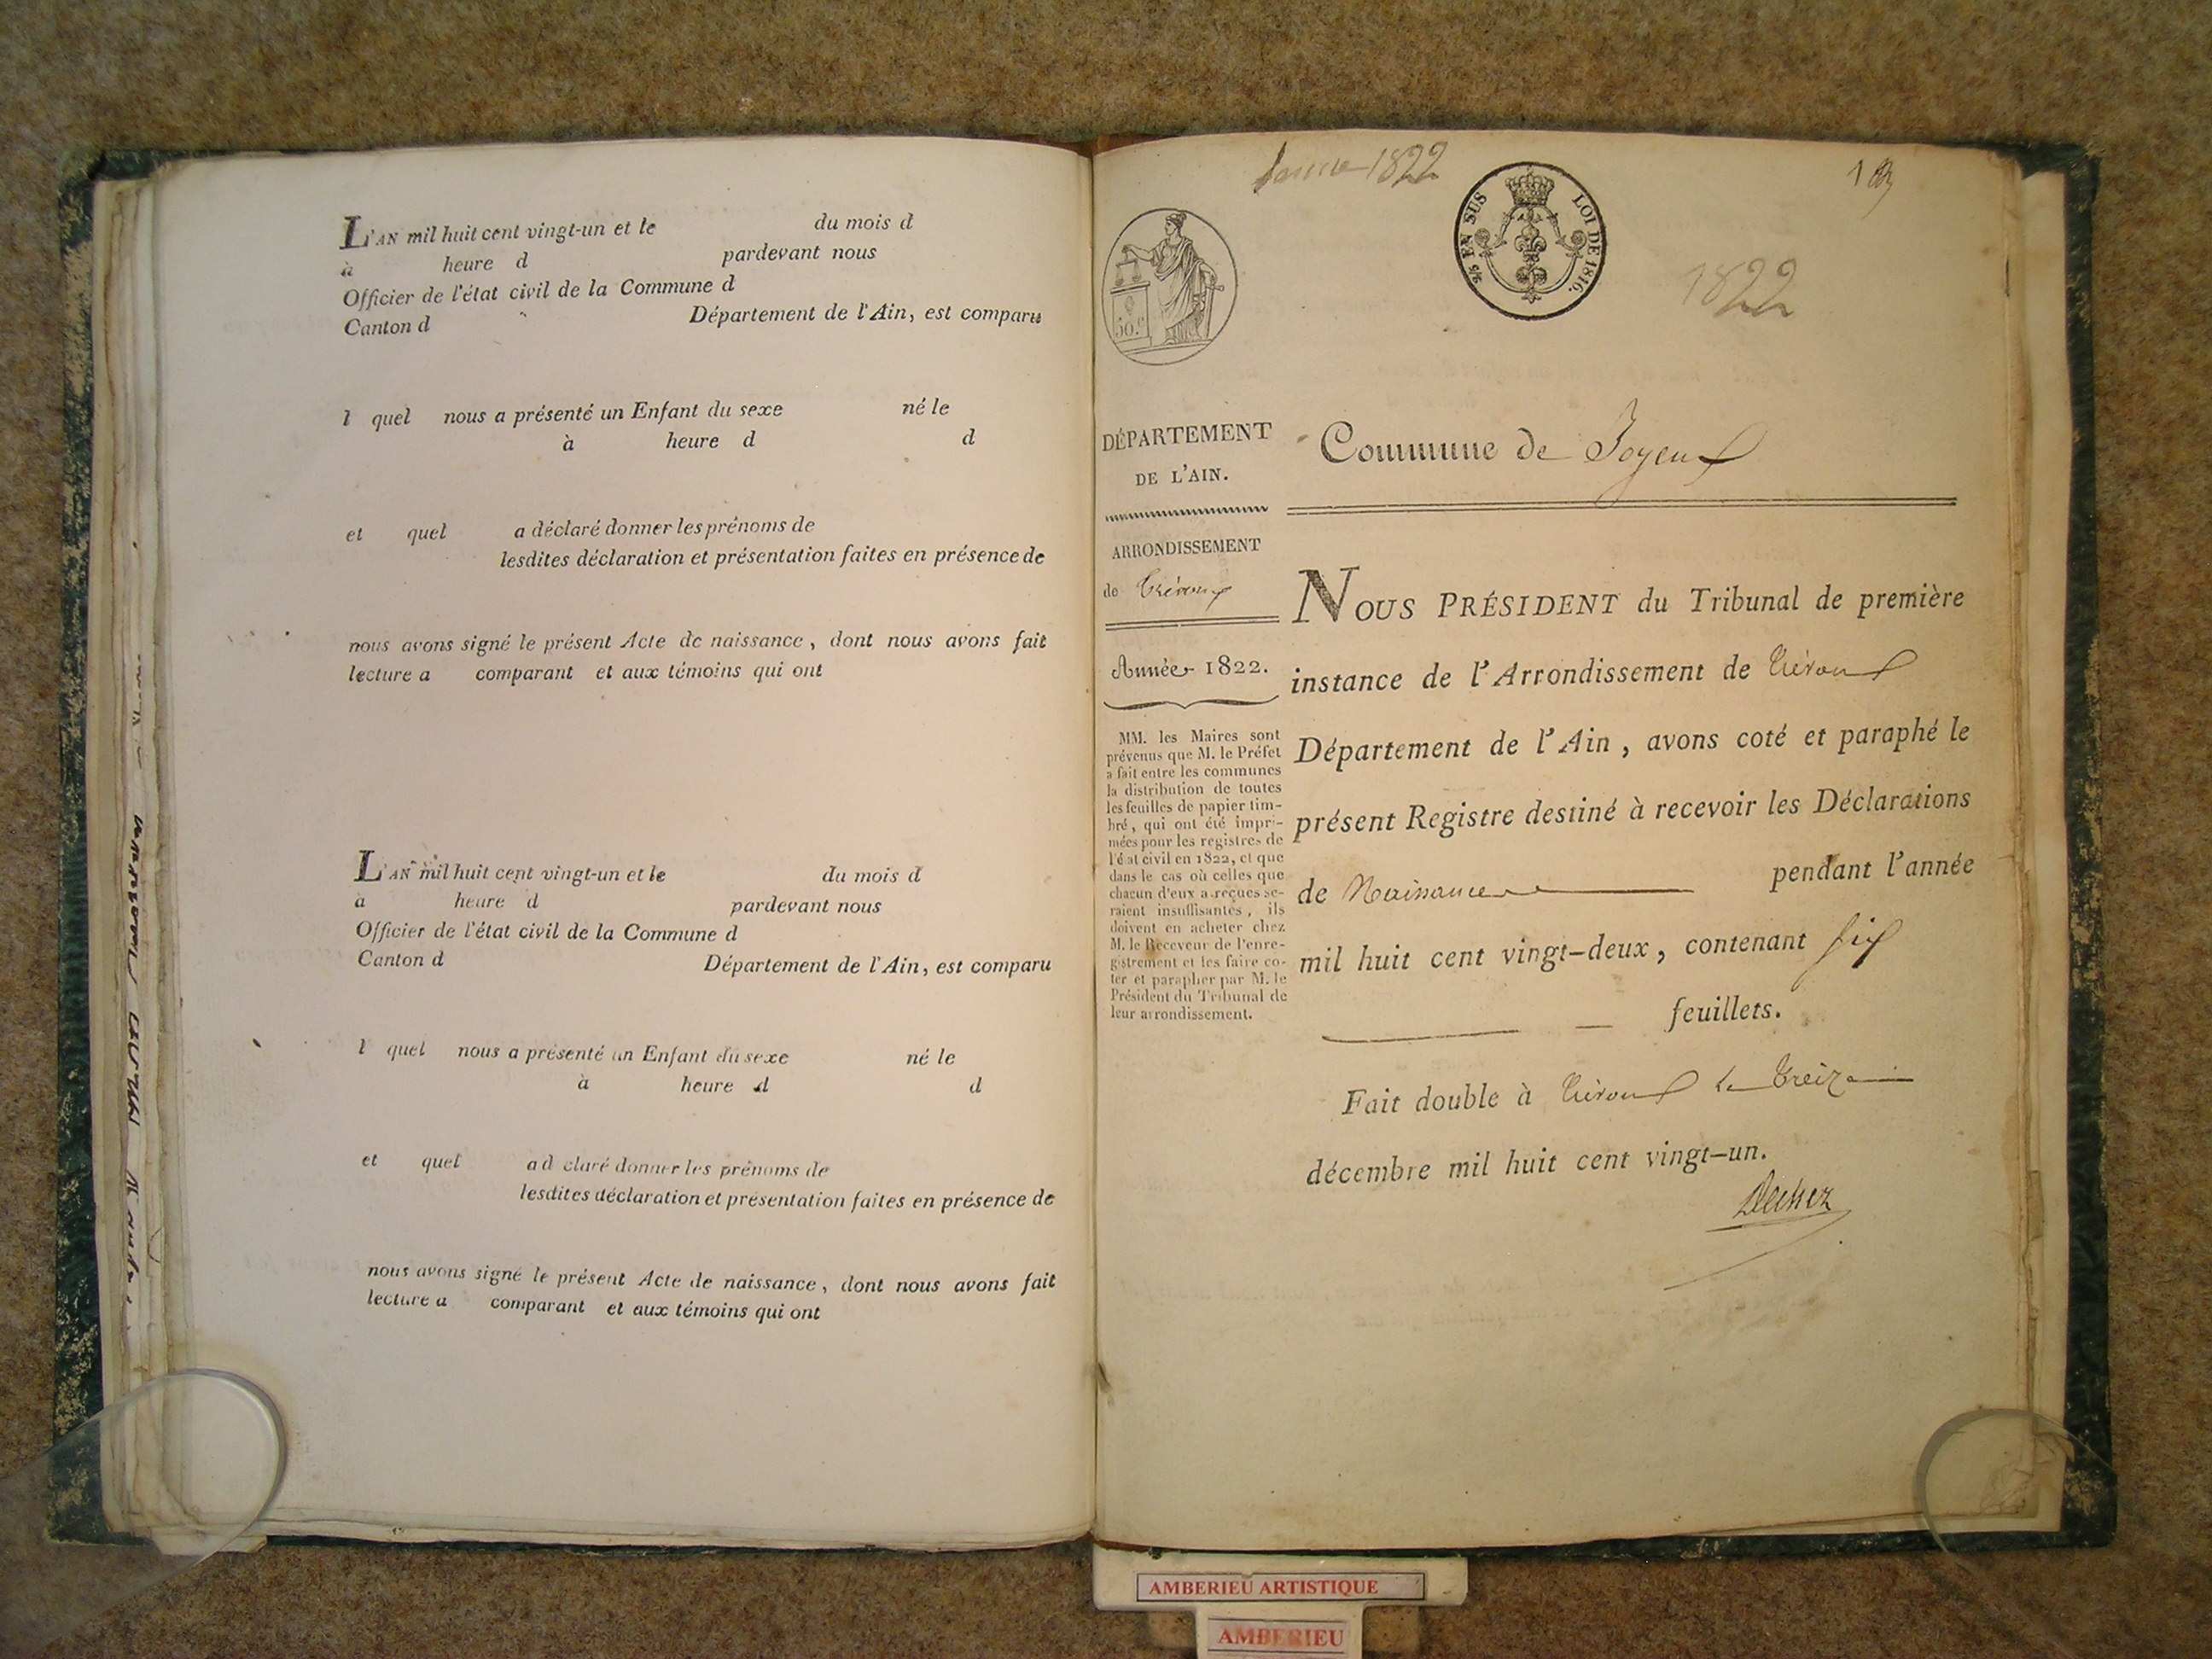 L'AN mil huit cent vingt-un et le du mois d
à heure d pardevant nous
Officier de l'état civil de la Commune d
Canton d Département de l'Ain, est comparu
l quel nous a présenté un Enfant du sexe né le
à heure d d
et quel a déclaré donner les prénoms de
lesdites déclaration et présentation faites en présence de
nous avons signé le présent Acte de naissance, dont nous avons fait
lecture a comparant et aux témoins qui ont
L'AN mil huit cent vingt-un et le du mois d
à heure d pardevant nous
Officier de l'état civil de la Commune d
Canton d Département de l'Ain, est comparu
l quel nous a présenté un Enfant du sexe né le
à heure d d
et quel a déclaré donner les prénoms de
lesdites déclaration et présentation faites en présence de
nous avons signé le présent Acte de naissance, dont nous avons fait
lecture a comparant et aux témoins qui ont
1822
2/5 EN SUS LOI DE 1816.
50.c
1822
DÉPARTEMENT
DE L'AIN.
ARRONDISSEMENT
de Trévoux
Année 1822.
MM. les Maires sont
prévenus que M. le Préfet
a fait entre les communes
la distribution de toutes
les feuilles de papier tim-
bré, qui ont été impri-
mées pour les registres de
l'état civil en 1822, et que
dans le cas où celles que
chacun d'eux a reçues se-
raient insuffisantes, ils
doivent en acheter chez
M. le Receveur de l'enre-
gistrement et les faire co-
ter et parapher par M. le
Président du Tribunal de
leur arrondissement.
Commune de Joyeux
NOUS PRÉSIDENT du Tribunal de première
instance de l'Arrondissement de Trévoux
Département de l'Ain, avons coté et paraphé le
présent Registre destiné à recevoir les Déclarations
de Naissance pendant l'année
mil huit cent vingt-deux, contenant six
feuillets.
Fait double à Trévoux le treize
décembre mil huit cent vingt-un.
AMBERIEU ARTISTIQUE
AMBERIEU